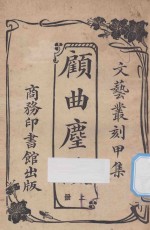 文藝叢刻甲集
顧曲麈
商務印書館出版